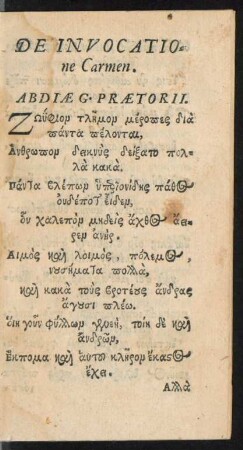 DE INVOCATIO-
ne Carmen.
ABDIÆ G. PRÆTORII.
Ζωΰφιον τλῆμον μέροπες διὰ
πάντα πέλονται,
Ανθρωπον δεικνὺς δείξατο πολ-
λὰ κακά.
Πάντα βλέπων ὑπεριονίδης πάθ
οὐδέποτ' εἶδεν,
ὃν χαλεπὸν μηδεὶς ἄχθος
ρεν ἀνήρ.
Λιμὸς καὶ λοιμός, πόλεμος,
νυσήματα πολλὰ,
καὶ κακὰ τοὺς βροτέους ἄνδρας
ἄγουσι πλέω.
οἵη γοῦν φύλλων γενεή, τοίη δὲ καὶ
ἀνδρῶν,
Εκπομα καὶ αὐτοὶ κλῆρον ἕκαστος
ἔχει.
Αλλὰ